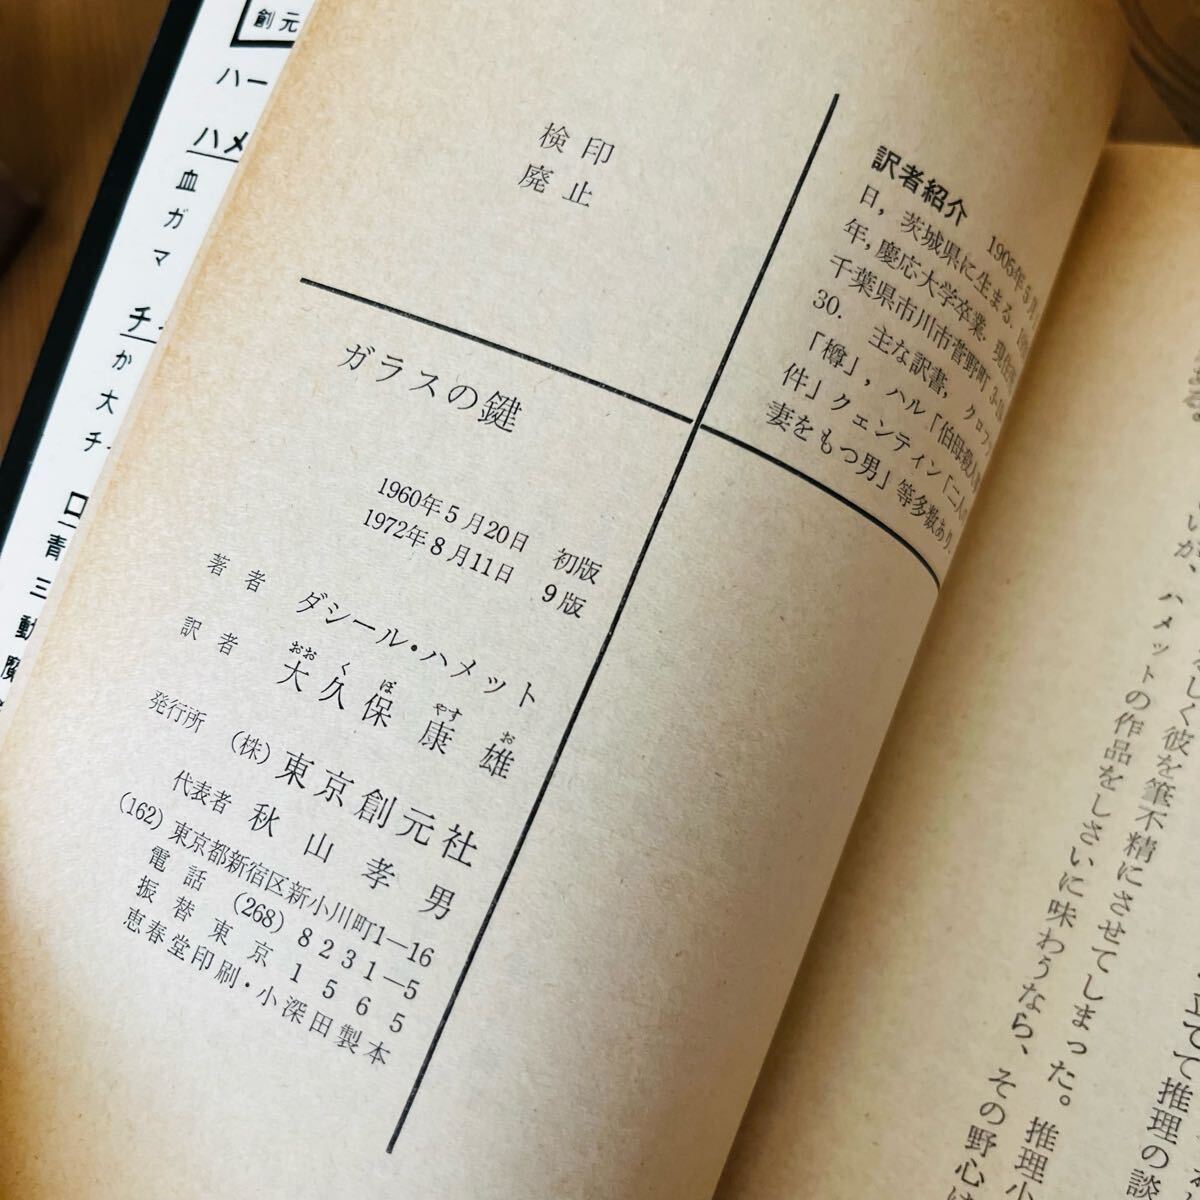 創元
ハー
ハメ
血
ガ
マ
チ
か
大
チ
青
三
動
検印
廃止
訳者紹介 1905年5月
日，茨城県に生まる．
年，慶応大学卒業．現住
千葉県市川市菅野町 3-
30． 主な訳書，クロフ
「樽」，ハル「伯母殺人
件」クェンティン「二人の
妻をもつ男」等多数あり．
ガラスの鍵
1960年5月20日 初版
1972年8月11日 9版
著者 ダシール・ハメット
訳者 大久保康雄
おお く ぼ やす お
発行所 (株) 東京創元社
代表者 秋山孝男
(162) 東京都新宿区新小川町1—16
電話 (268) 8231—5
振替東京1565
恵春堂印刷・小深田製本
る。
いが、ハメットの作品をしさいに味わうなら、その野心は
しく彼を筆不精にさせてしまった。推理小
立てて推理の談